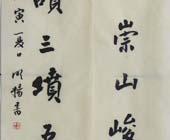 崇山峻
讀三墳五
寅夏日明揚書